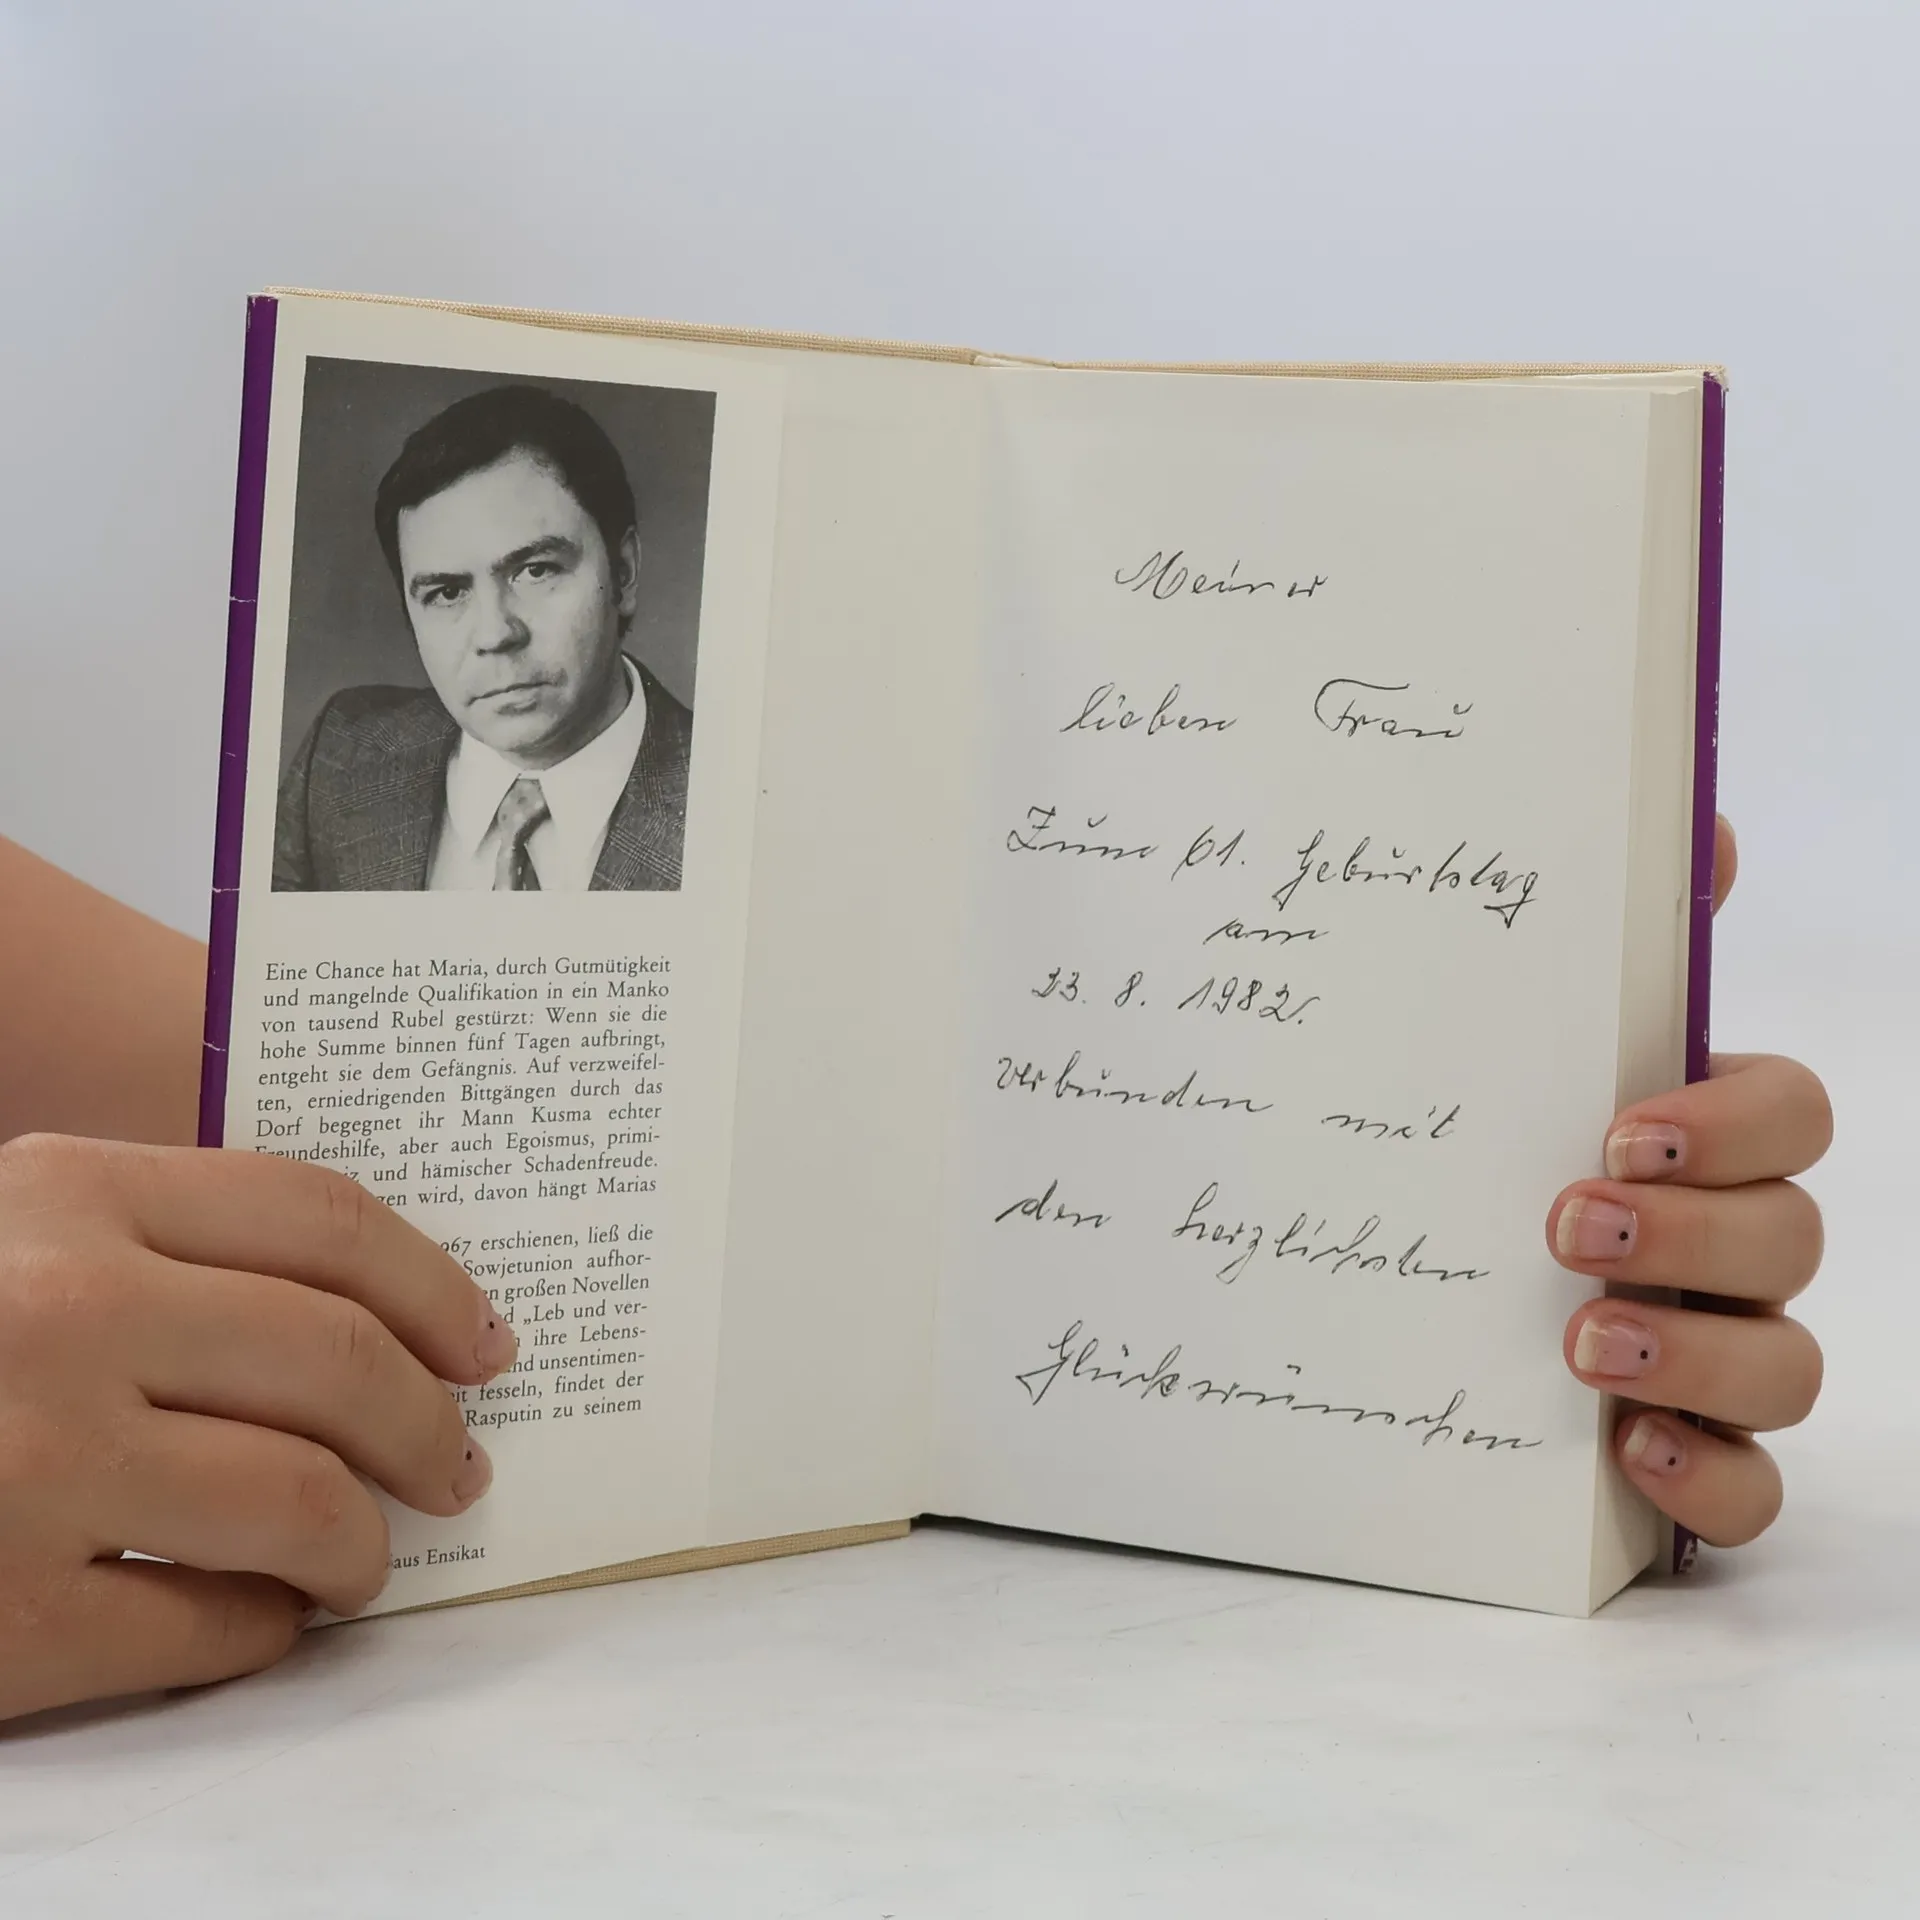 Eine Chance hat Maria, durch Gutmütigkeit
und mangelnde Qualifikation in ein Manko
von tausend Rubel gestürzt: Wenn sie die
hohe Summe binnen fünf Tagen aufbringt,
entgeht sie dem Gefängnis. Auf verzweifel-
ten, erniedrigenden Bittgängen durch das
Dorf begegnet ihr Mann Kusma echter
Freundeshilfe, aber auch Egoismus, primi-
und hämischer Schadenfreude.
wird, davon hängt Marias
erschienen, ließ die
Sowjetunion aufhor-
großen Novellen
„Leb und ver-
ihre Lebens-
unsentimen-
fesseln, findet der
Rasputin zu seinem
Ensikat
Meiner
lieben Frau
Zum 61. Geburtstag
am
23. 8. 1982.
verbunden mit
den herzlichsten
Glückwünschen